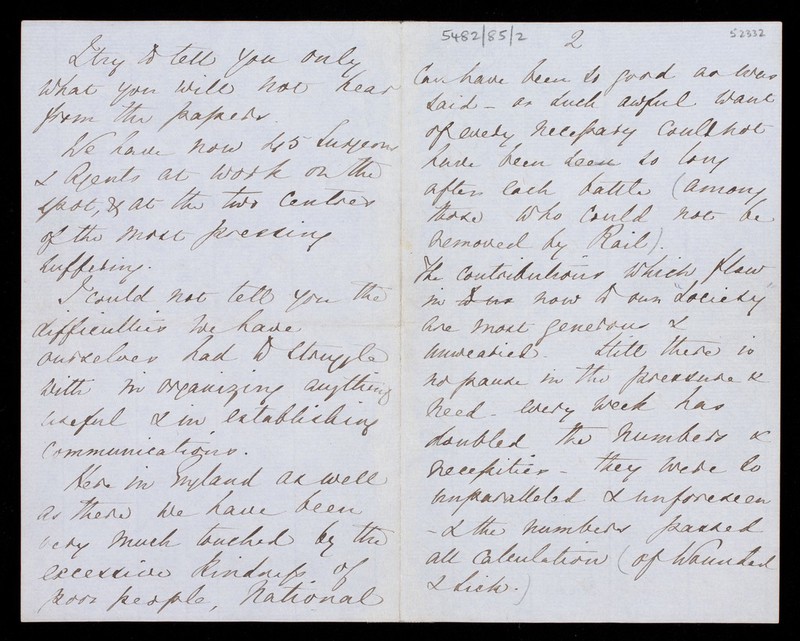 I try to tell you only
what you will not hear
from the papers.
We have now 45 Surgeons
& Agents at work on the
spot, & at the two centres
of the most pressing
suffering.
I could not tell you the
difficulties we have
ourselves had to struggle
with in organizing anything
useful & in establishing
communications.
Here in England as well
as there we have been
very much touched by the
excessive kindness of
poor people, National
5482/85/2
2
52332
Can have been so good as was
said - as such awful want
of every necessary could not
have been seen so long
after each battle (among
those who could not be
removed by Rail).
The contributions which flow
in to us now to our "Society"
are most generous &
unwearied. Still there is
no pause in the pressure &
need - every week has
doubled the numbers &
necessities - they were so
unparalleled & unforeseen
- & the numbers passed
all calculation (of Wounded
& Sick.)